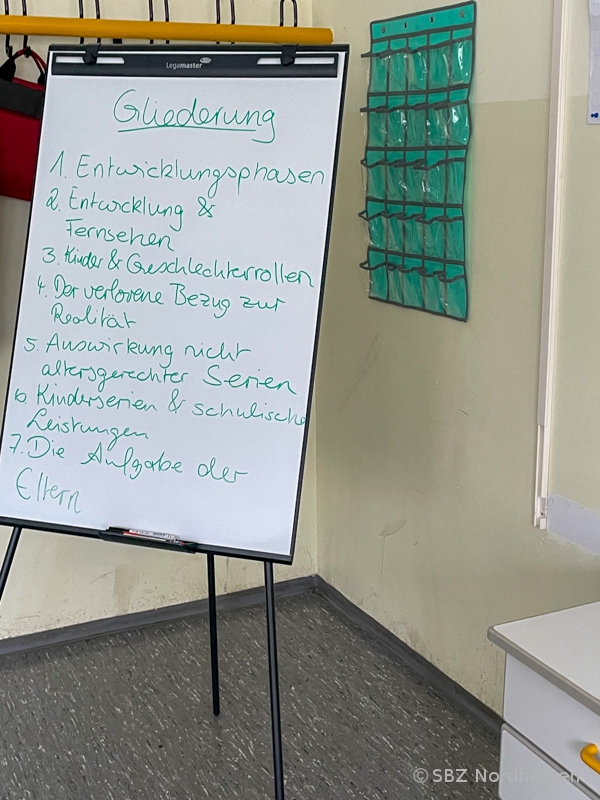 Legamaster
Gliederung
1. Entwicklungsphasen
2. Entwicklung &
Fernsehen
3. Kinder & Geschlechterrollen
4. Der verlorene Bezug zur
Realität
5. Auswirkung nicht
altersgerechter Serien
6. Kinderserien & schulische
Leistungen
7. Die Aufgabe der
Eltern
© SBZ Nordhausen